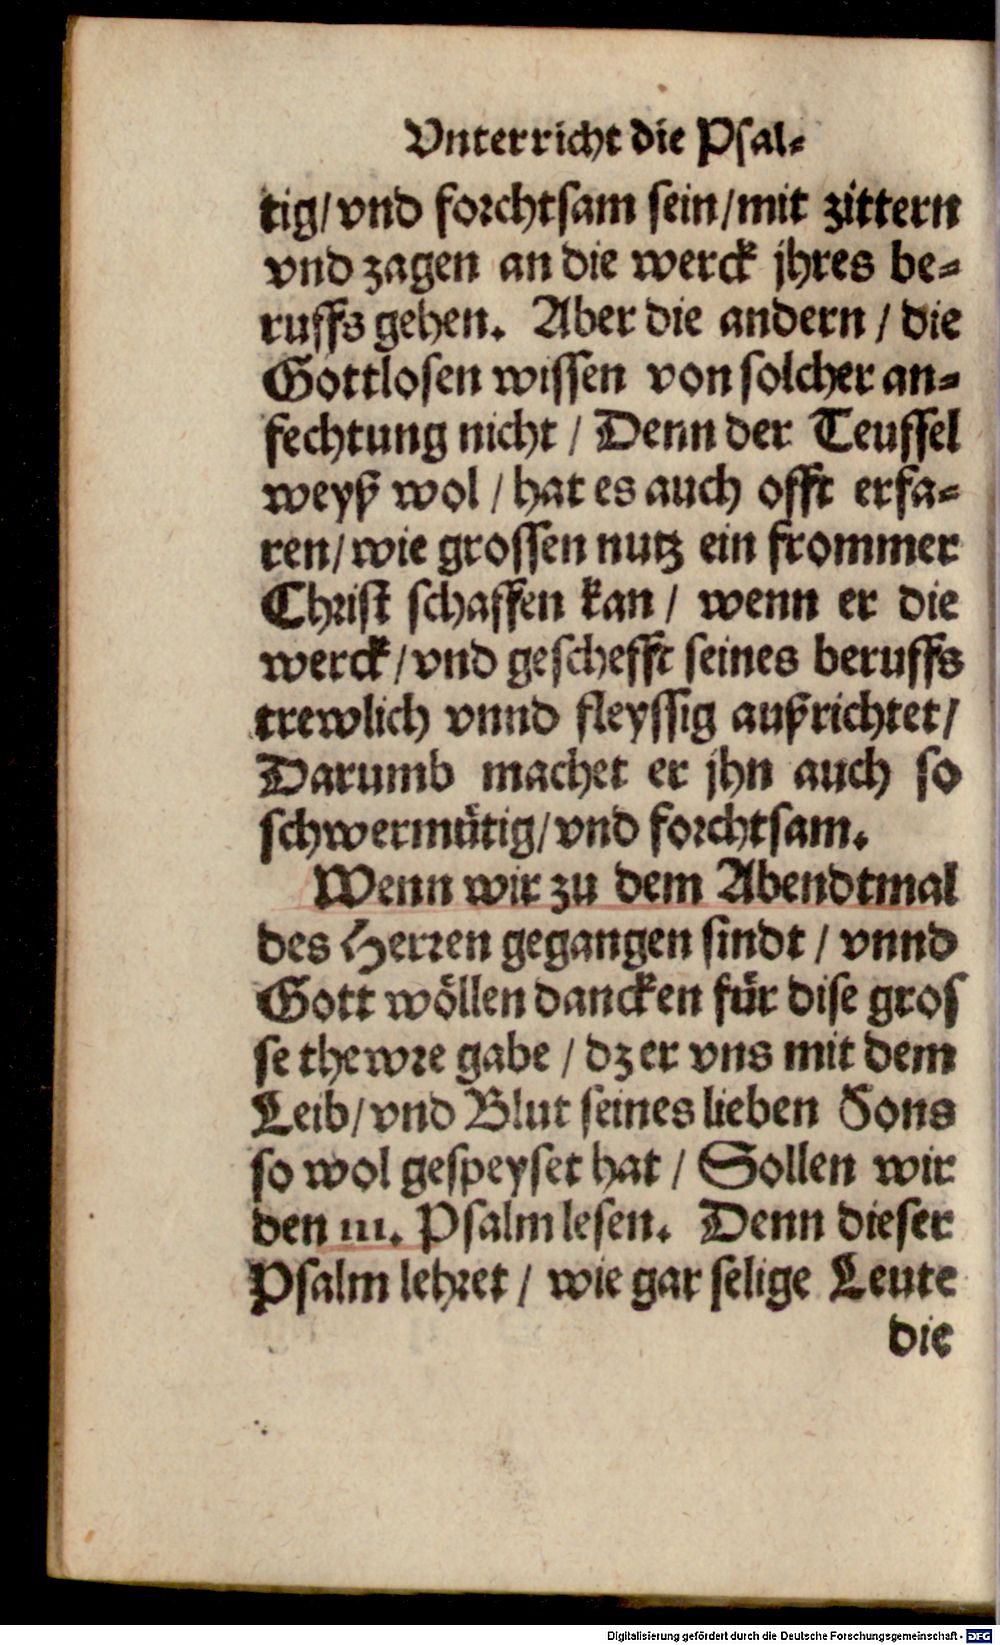 Vnterricht die Psal⸗
tig/ vnd forchtsam sein/ mit zittern
vnd zagen an die werck jhres be⸗
ruffs gehen. Aber die andern / die
Gottlosen wissen von solcher an⸗
fechtung nicht / Denn der Teuffel
weyß wol / hat es auch offt erfa⸗
ren/ wie grossen nutz ein frommer
Christ schaffen kan / wenn er die
werck / vnd geschefft seines beruffs
trewlich vnnd fleyssig außrichtet/
Darumb machet er jhn auch so
schwermütig/ vnd forchtsam.
Wenn wir zu dem Abendtmal
des Herren gegangen sindt / vnnd
Gott wöllen dancken für dise gros
se thewre gabe / dz er vns mit dem
Leib/ vnd Blut seines lieben Sons
so wol gespeyset hat / Sollen wir
den 111. Psalm lesen. Denn dieser
Psalm lehret / wie gar selige Leute
die
Digitalisierung gefördert durch die Deutsche Forschungsgemeinschaft - DFG